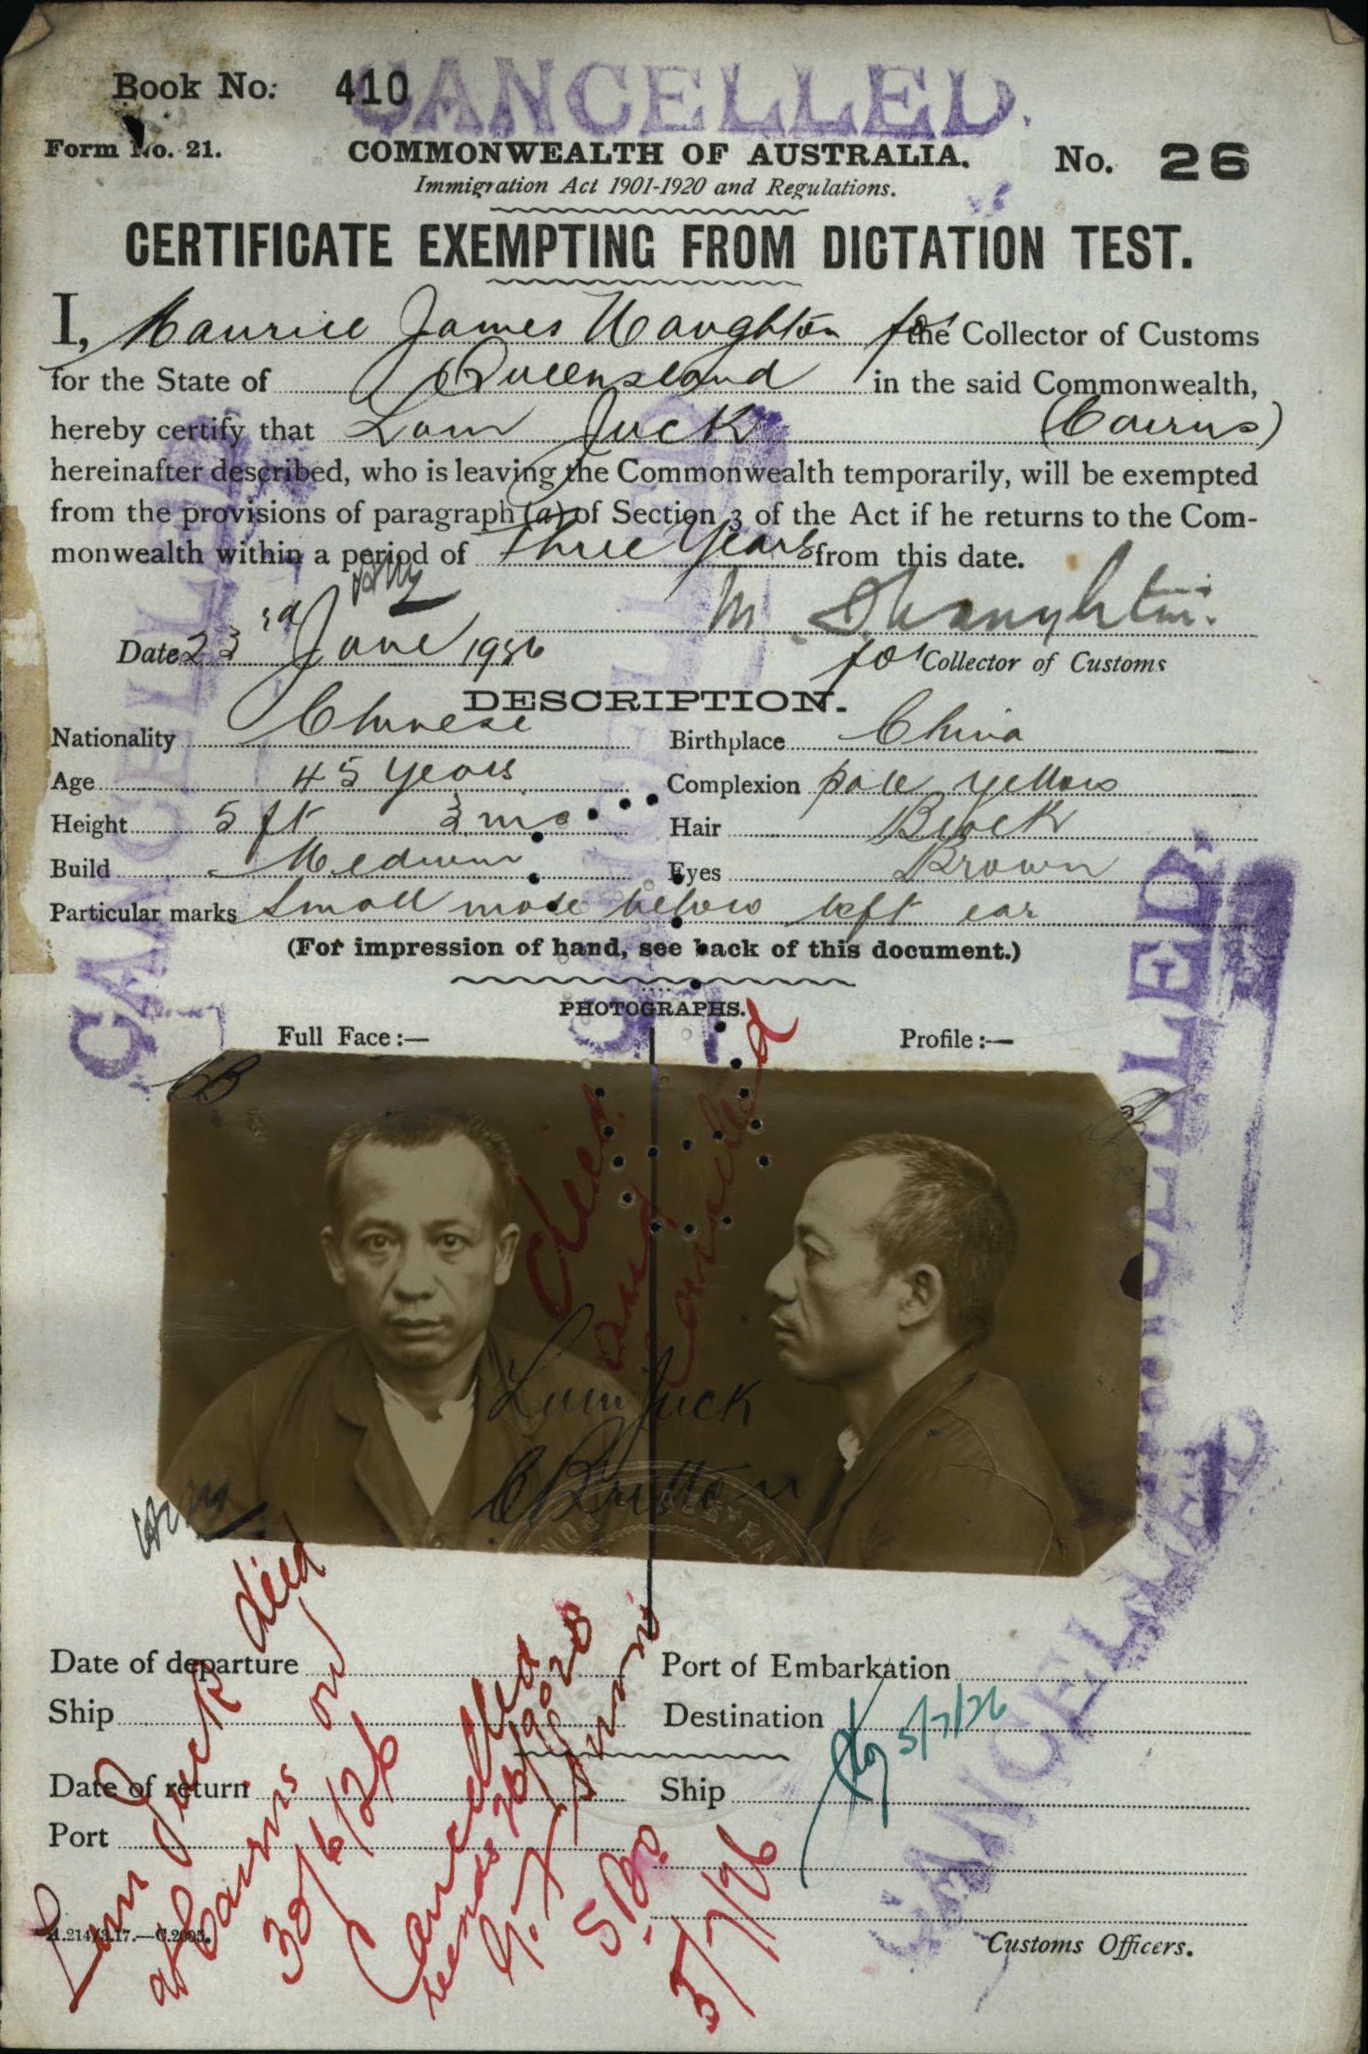 CANCELLED.
Book No: 410
Form No. 21.
COMMONWEALTH OF AUSTRALIA.
No. 26
Immigration Act 1901-1920 and Regulations.
CERTIFICATE EXEMPTING FROM DICTATION TEST.
I, Maurice James Naughton for the Collector of Customs
for the State of Queensland in the said Commonwealth,
hereby certify that Lum Juck (Cairns)
hereinafter described, who is leaving the Commonwealth temporarily, will be exempted
from the provisions of paragraph (a) of Section 3 of the Act if he returns to the Com-
monwealth within a period of three Years from this date.
M. J. Naughton.
Date 23rd June 1926
for Collector of Customs
DESCRIPTION.
Nationality Chinese
Birthplace China
Age 45 years
Complexion pale yellow
Height 5 ft 3 ins
Hair Black
Build Medium
Eyes Brown
Particular marks Small mole below left ear
(For impression of hand, see back of this document.)
PHOTOGRAPHS.
Full Face:—
Profile:—
CB
died.
and
cancelled
Lum Juck
C Britton
Date of departure
Port of Embarkation
Ship
Destination
5/7/26
Date of return
Ship
Port
Lum Juck died
at Cairns on
30/6/26
Cancelled
5/7/26
Customs Officers.
CANCELLED.
CANCELLED
CANCELLED.
CANCELLED